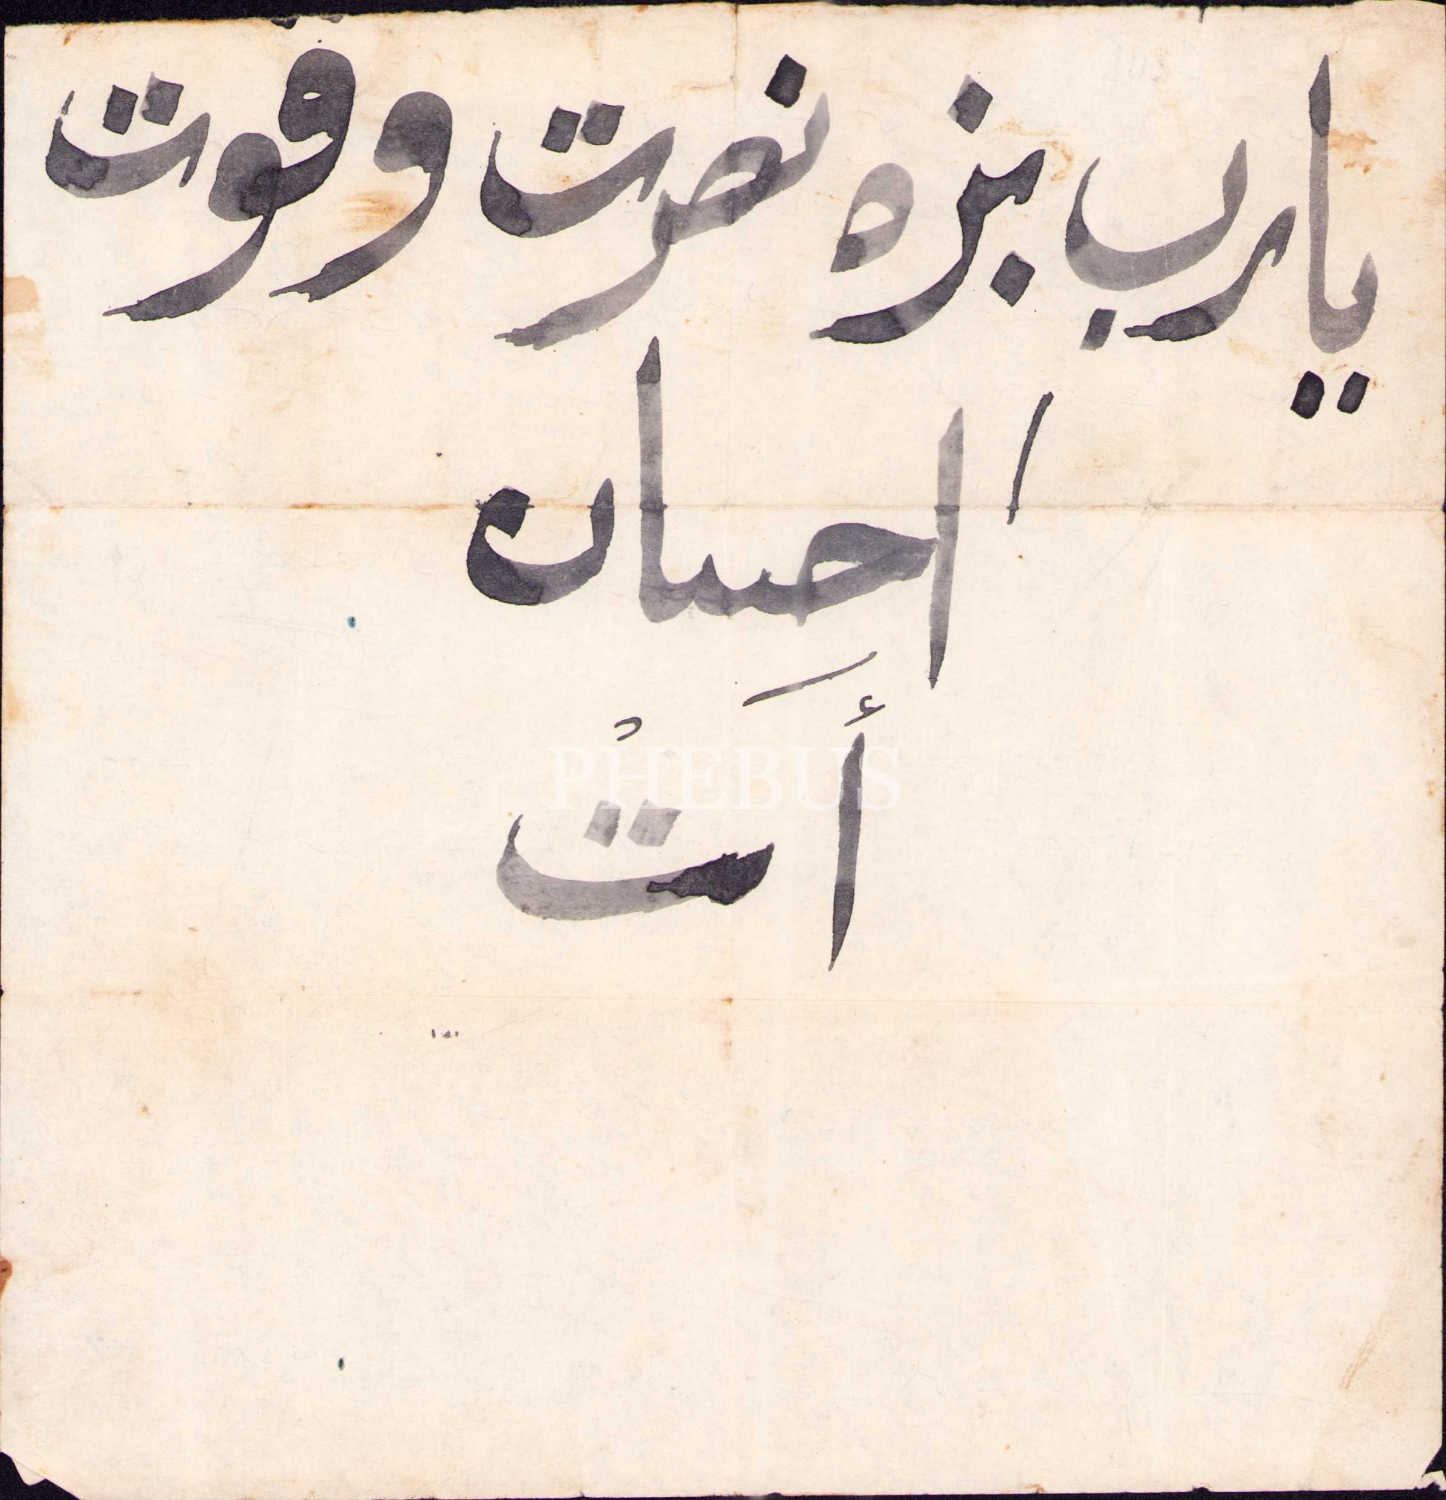 يارب بزه نصرت و قوت
احسان
أتْ
PHEBUS